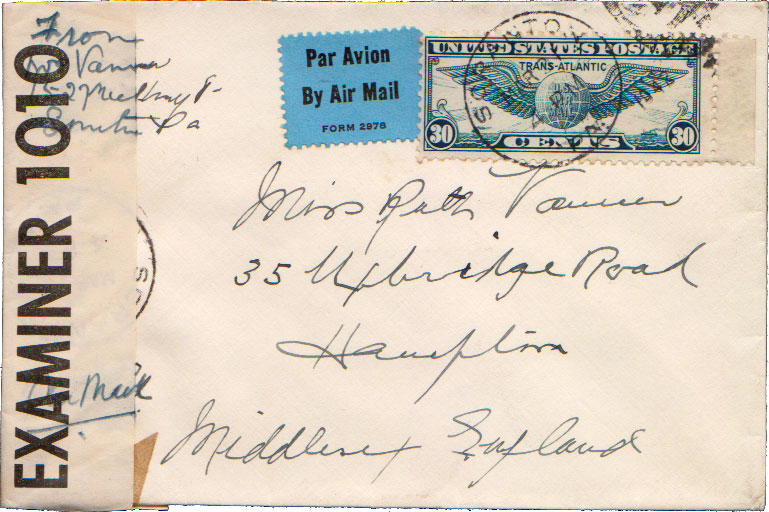 From
Vanner
Scranton Pa
Air Mail
EXAMINER 1010
Par Avion
By Air Mail
FORM 2978
UNITED STATES POSTAGE
TRANS-ATLANTIC
30 CENTS 30
SCRANTON
Miss Ruth Vanner
35 Uxbridge Road
Hampton
Middlesex England